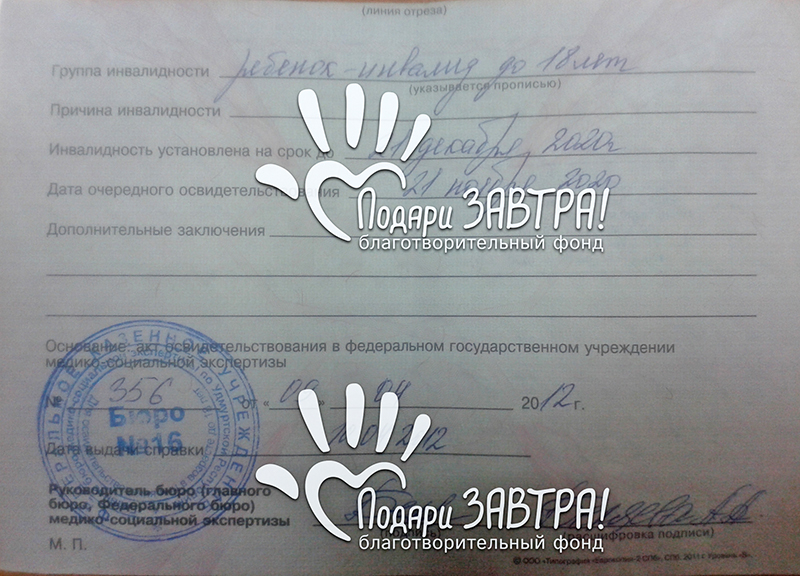 (линия отреза)
Группа инвалидности ребенок-инвалид до 18 лет
(указывается прописью)
Причина инвалидности
Инвалидность установлена на срок до 21 декабря 2020г
Дата очередного освидетельствования 21 ноября 2020
Подари ЗАВТРА!
Дополнительные заключения
благотворительный фонд
Основание: акт освидетельствования в федеральном государственном учреждении
медико-социальной экспертизы
№ 356 от « » 2012 г.
Бюро
№16
Дата выдачи справки
Руководитель бюро (главного
бюро, Федерального бюро)
медико-социальной экспертизы
Подари ЗАВТРА!
благотворительный фонд
(подпись) (расшифровка подписи)
М. П.